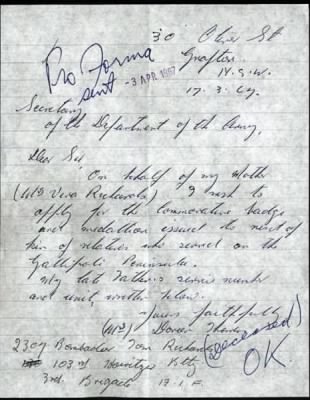 30 Oliver St
Grafton
N.S.W.
17.3.67.
Pro Forma
sent
-3 APR 1967
Secretary
of the Department of the Army.
Dear Sir
On behalf of my Mother
(Mrs Vera Richards) I wish to
apply for the commemorative badge
and medallion issued to next of
kin of relatives who served on the
Gallipoli Peninsula.
My late Father's service number
and unit, written below.
Yours faithfully
(Mrs) Doreen
(Deceased)
2307 Bombadier Tom Richards
103rd Howitzer Btty
3rd Brigade A.I.F
OK